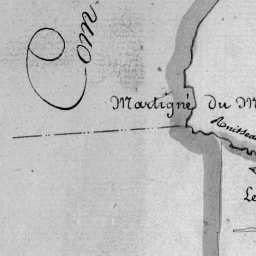 Com
Martigné du M
Ruissea
Le